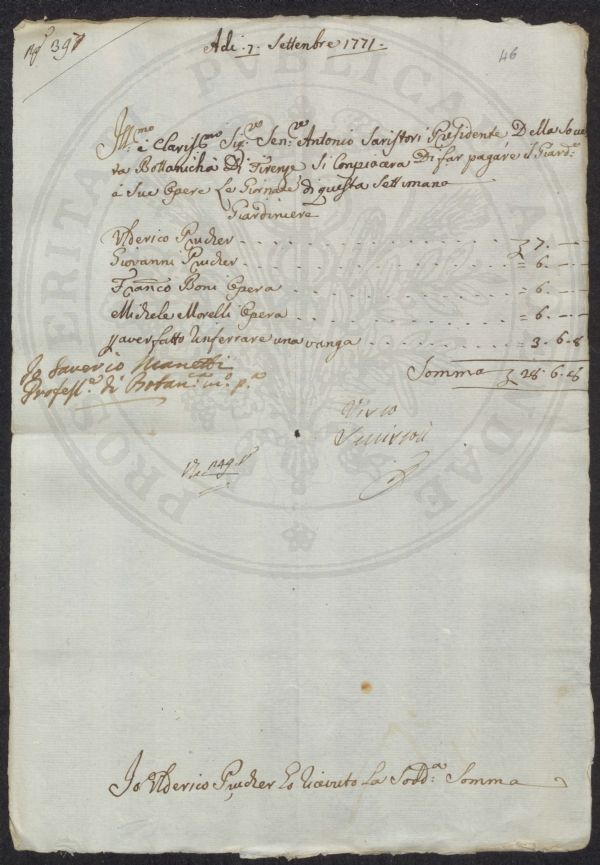 397
Adi . 7 . Settenbre 1771 .
46
Ill.mo e Clariss.mo Sig.re Sen.re Antonio Saristori Presidente Della Socie
ta Bottanicha Di Firenze Si Conpiacera Di far pagare il Giard.e
a Sue Opere Le Giornate di questa Settimana
Giardiniere
Ulderico Prucher . . . 7 . —
Giovanni Prucher . . . = 6 . —
Franco Boni Opera . . . = 6 . —
Michele Morelli Opera . . . = 6 . —
p aver fatto Inferrare una vanga . . . 3 . 6 . 8
Somma 28 . 6 . 8
Io Saverio Manetti
Profess.e di Botan.ca m.o p.a
Visto
Io Ulderico Prucher Ho Ricevuto La Sodd.a Somma
PROSPERITATI PUBLICAE AUGENDAE